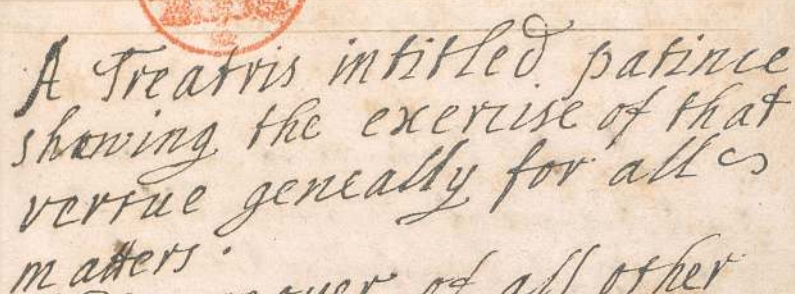 A Treatris intitled patince
showing the exercise of that
vertue geneally for all
matters.
of all other